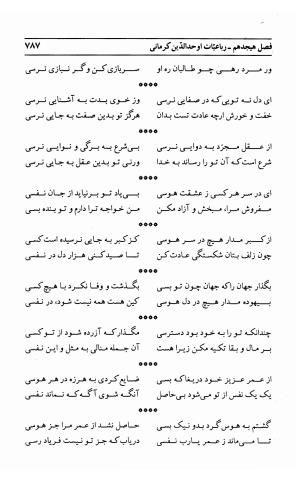 فصل هیجدهم ـ رباعیّات اوحدالدّین کرمانی ۷۸۷
ور مرد رهی چو طالبان ره او سربازی کن و گر نیازی نرسی
****
ای دل نه تویی که در صفایی نرسی وز خوی بدت به آشنایی نرسی
خفت و خورش ارچه عادت تست بدان هرگز تو بدین صفت به جایی نرسی
****
از عقل مجرد به دوایی نرسی بی‌شرع به برگی و نوایی نرسی
شرع است که آن تو را رساند به خدا ورنی تو بدین عقل به جایی نرسی
****
ای در سر هر کسی ز عشقت هوسی بی یاد تو برنیاید از جان نفسی
مفروش مرا، مبخش و آزاد مکن من خواجه ترا دارم و تو بنده بسی
****
از کبر مدار هیچ در سر هوسی کز کبر به جایی نرسیده است کسی
چون زلف بتان شکستگی عادت کن تا صید کنی هزار دل در نفسی
****
بگذار جهان را که جهان چون تو بسی بگذشت و وفا نکرد با هیچ کسی
بیهوده مدار هیچ در دل هوسی کین هست همه نیست شود، در نفسی
****
چندانکه تو را به خود بود دسترسی مگذار که آزرده شود از تو کسی
بر مال و بقا تکیه مکن زیرا هست آن جمله منالی به مثل و این نفسی
****
از عمر عزیز خود دریغا که بسی ضایع کردی به هرزه در هر هوسی
یک یک نفس از تو می‌شود بی‌حاصل آنگه شوی آگه که نماند نفسی
****
گشتم به هوس گرد بدو نیک بسی حاصل نشد از عمر مرا جز هوسی
تا می‌ماند ز عمر یارب نفسی دریاب که جز تو نیست فریاد رسی